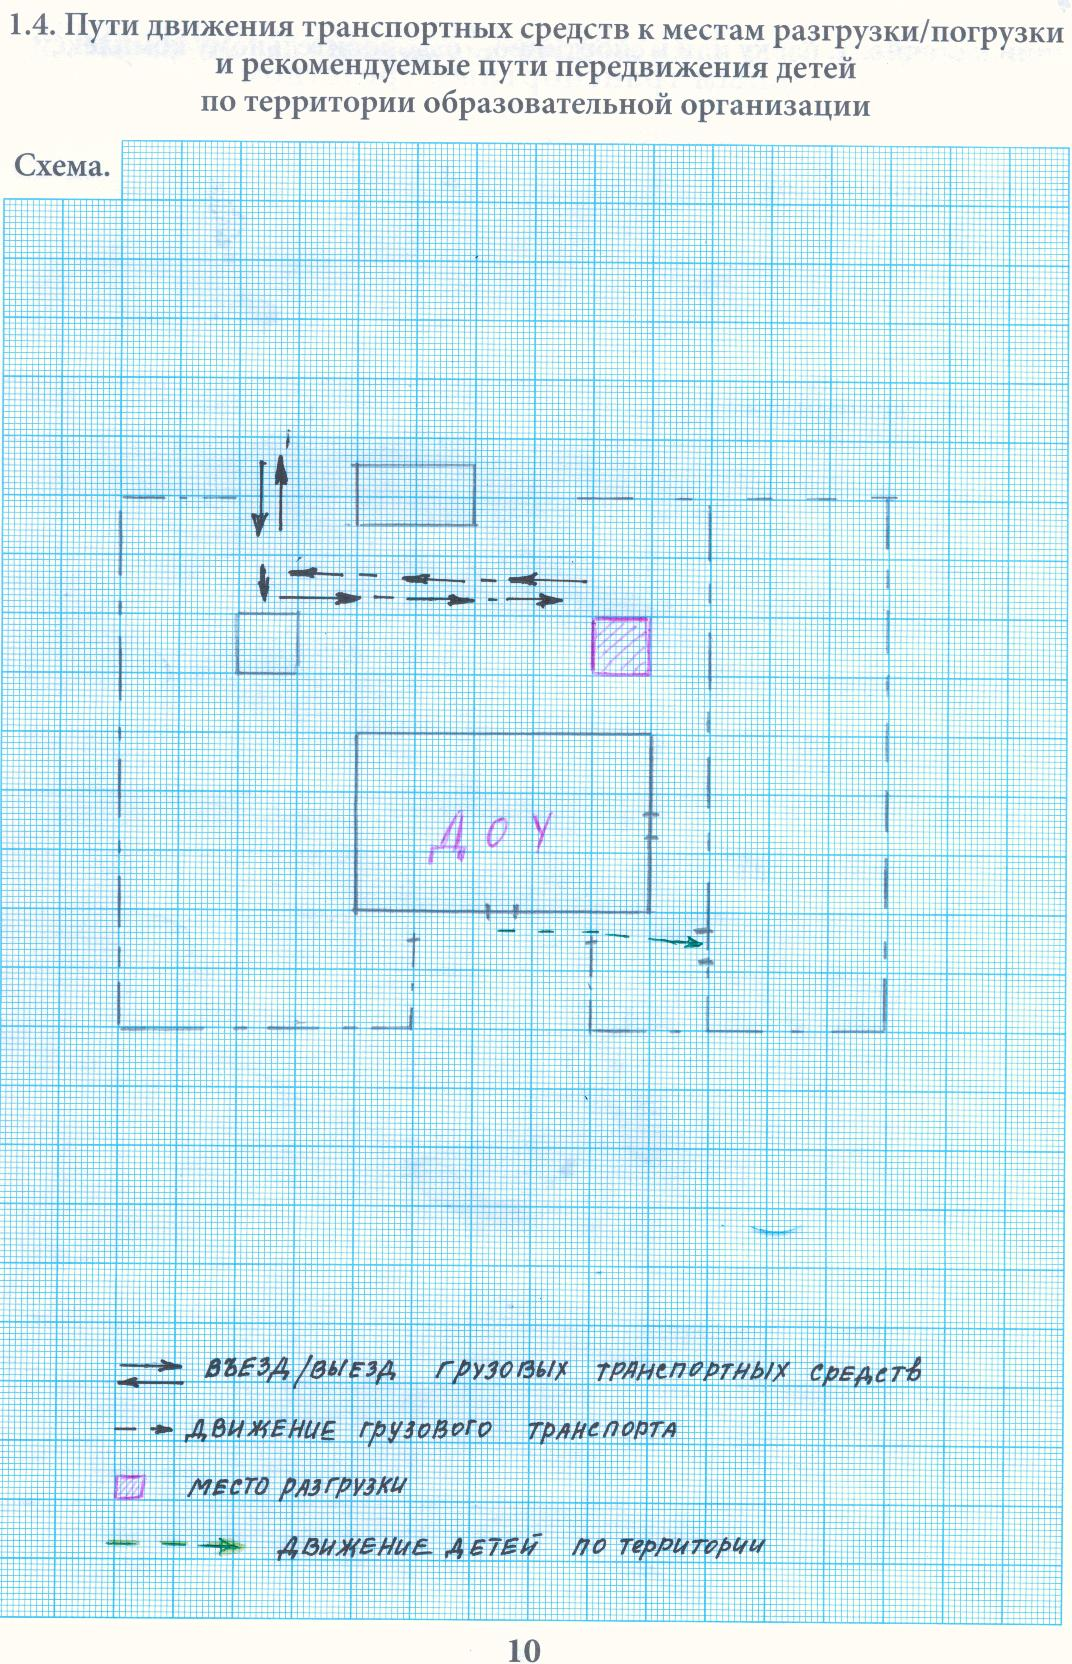 1.4. Пути движения транспортных средств к местам разгрузки/погрузки
и рекомендуемые пути передвижения детей
по территории образовательной организации
Схема.
ДОУ
ВЪЕЗД/ВЫЕЗД ГРУЗОВЫХ ТРАНСПОРТНЫХ СРЕДСТВ
ДВИЖЕНИЕ ГРУЗОВОГО ТРАНСПОРТА
МЕСТО РАЗГРУЗКИ
ДВИЖЕНИЕ ДЕТЕЙ ПО ТЕРРИТОРИИ
10